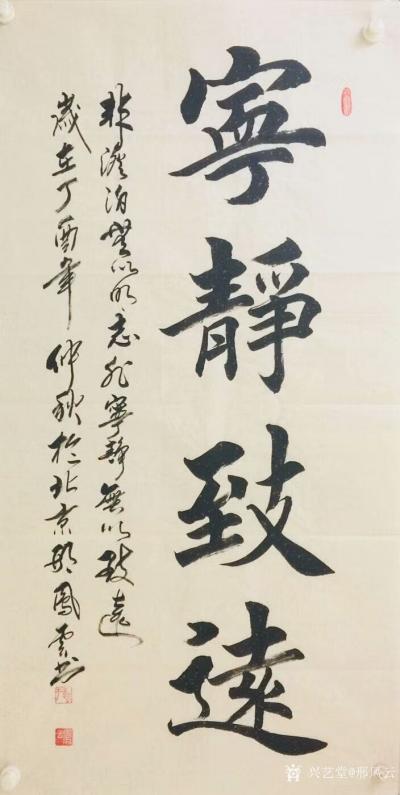 寧靜致遠
非澹泊無以明志非寧靜無以致遠
歲在丁酉年仲秋於北京邢鳳雲書
兴艺堂@邢风云